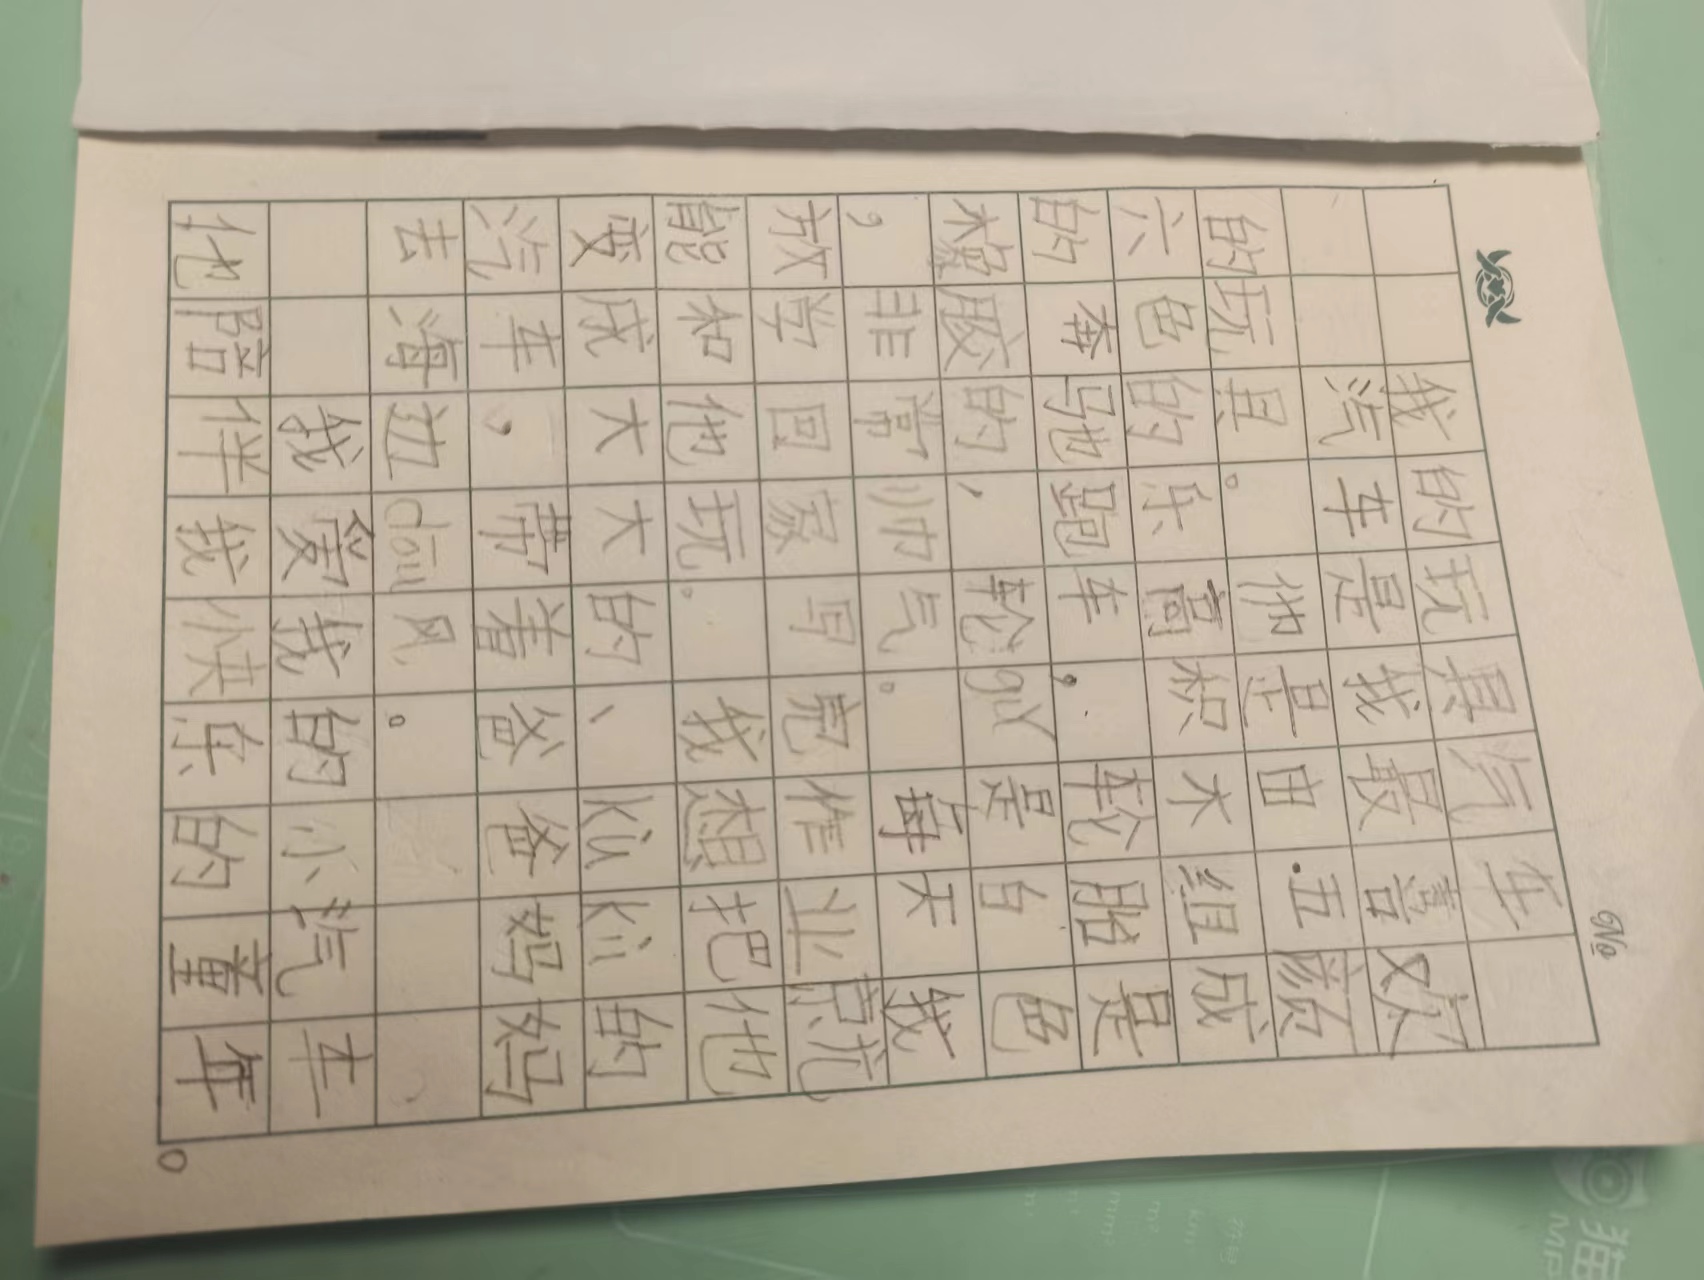 No
我的玩具汽车
汽车是我最喜欢
的玩具。他是由五颜
六色的乐高积木组成
的奔驰跑车，轮胎是
橡胶的，轮gǔ是白色
，非常帅气。每天我
放学回家写完作业就
能和他玩。我想把他
变成大大的、kùkù的
汽车，带着爸爸妈妈
去海边dōu风。
我爱我的小汽车
他陪伴我快乐的童年。
猫
MP